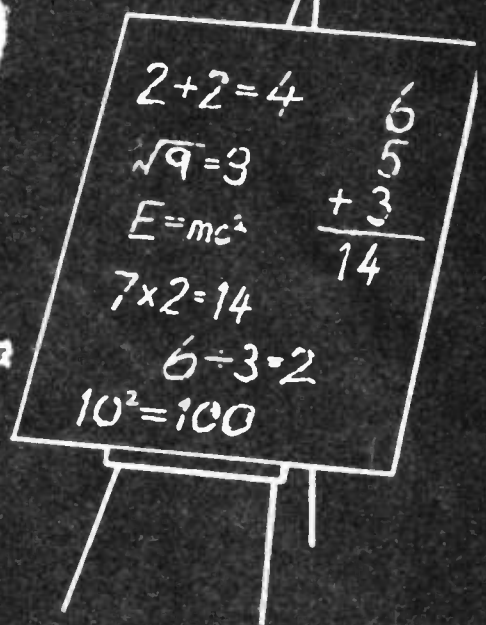 2+2=4
√9=3
E=mc²
7×2=14
6÷3=2
10²=100
6
5
+ 3
14